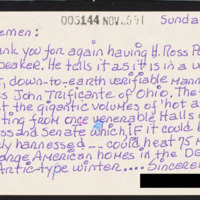 005144 NOV-591 Sunda
emen:
ank you for again having H. Ross P
peaker. He tells it as it is in a u
, down-to-earth verifiable mann
s John Trificante of Ohio. The
t the gigantic volumes of 'hot a
ting from once venerable Halls o
ss and Senate which, if it could b
ly harnessed -- could heat 75 m
ange American homes in the De
arctic-type winter.... Sincere